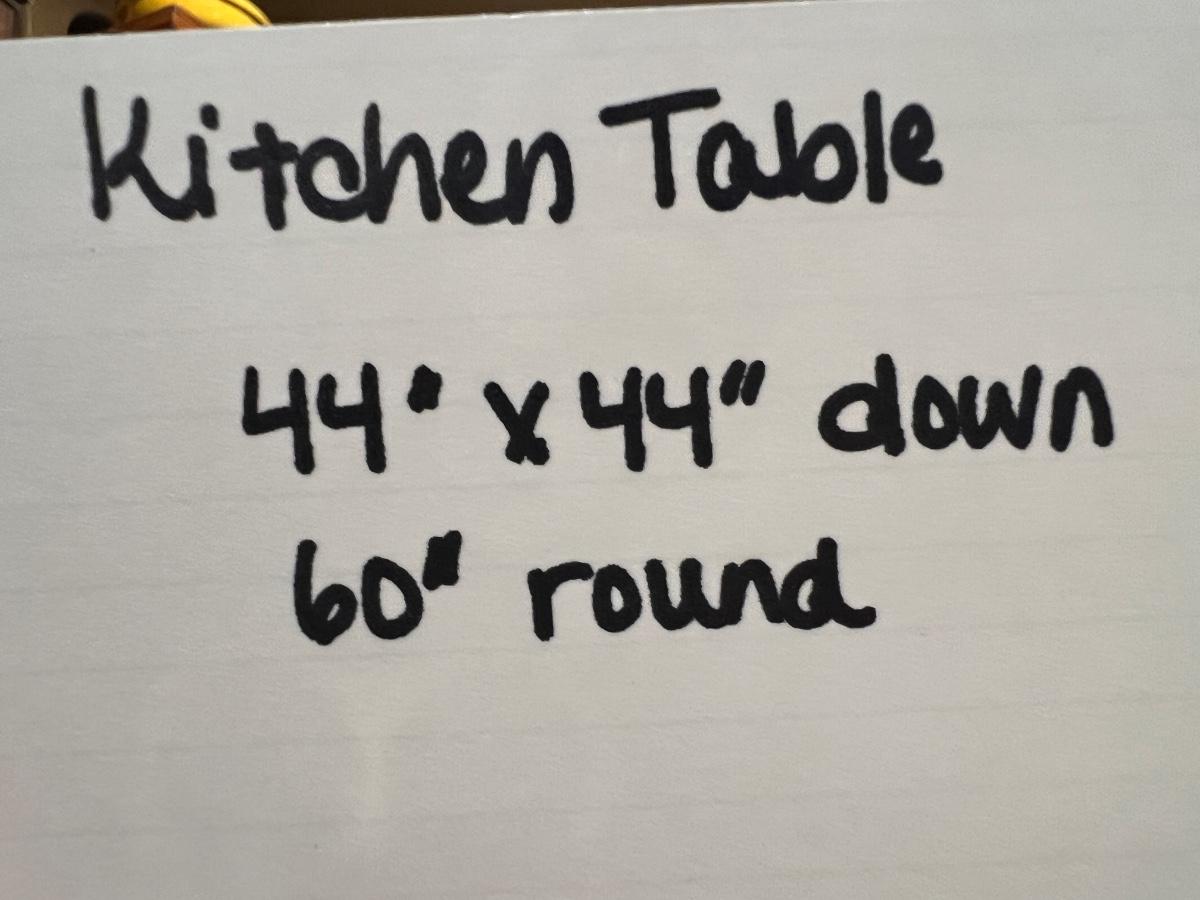 Kitchen Table
44" x 44" down
60" round